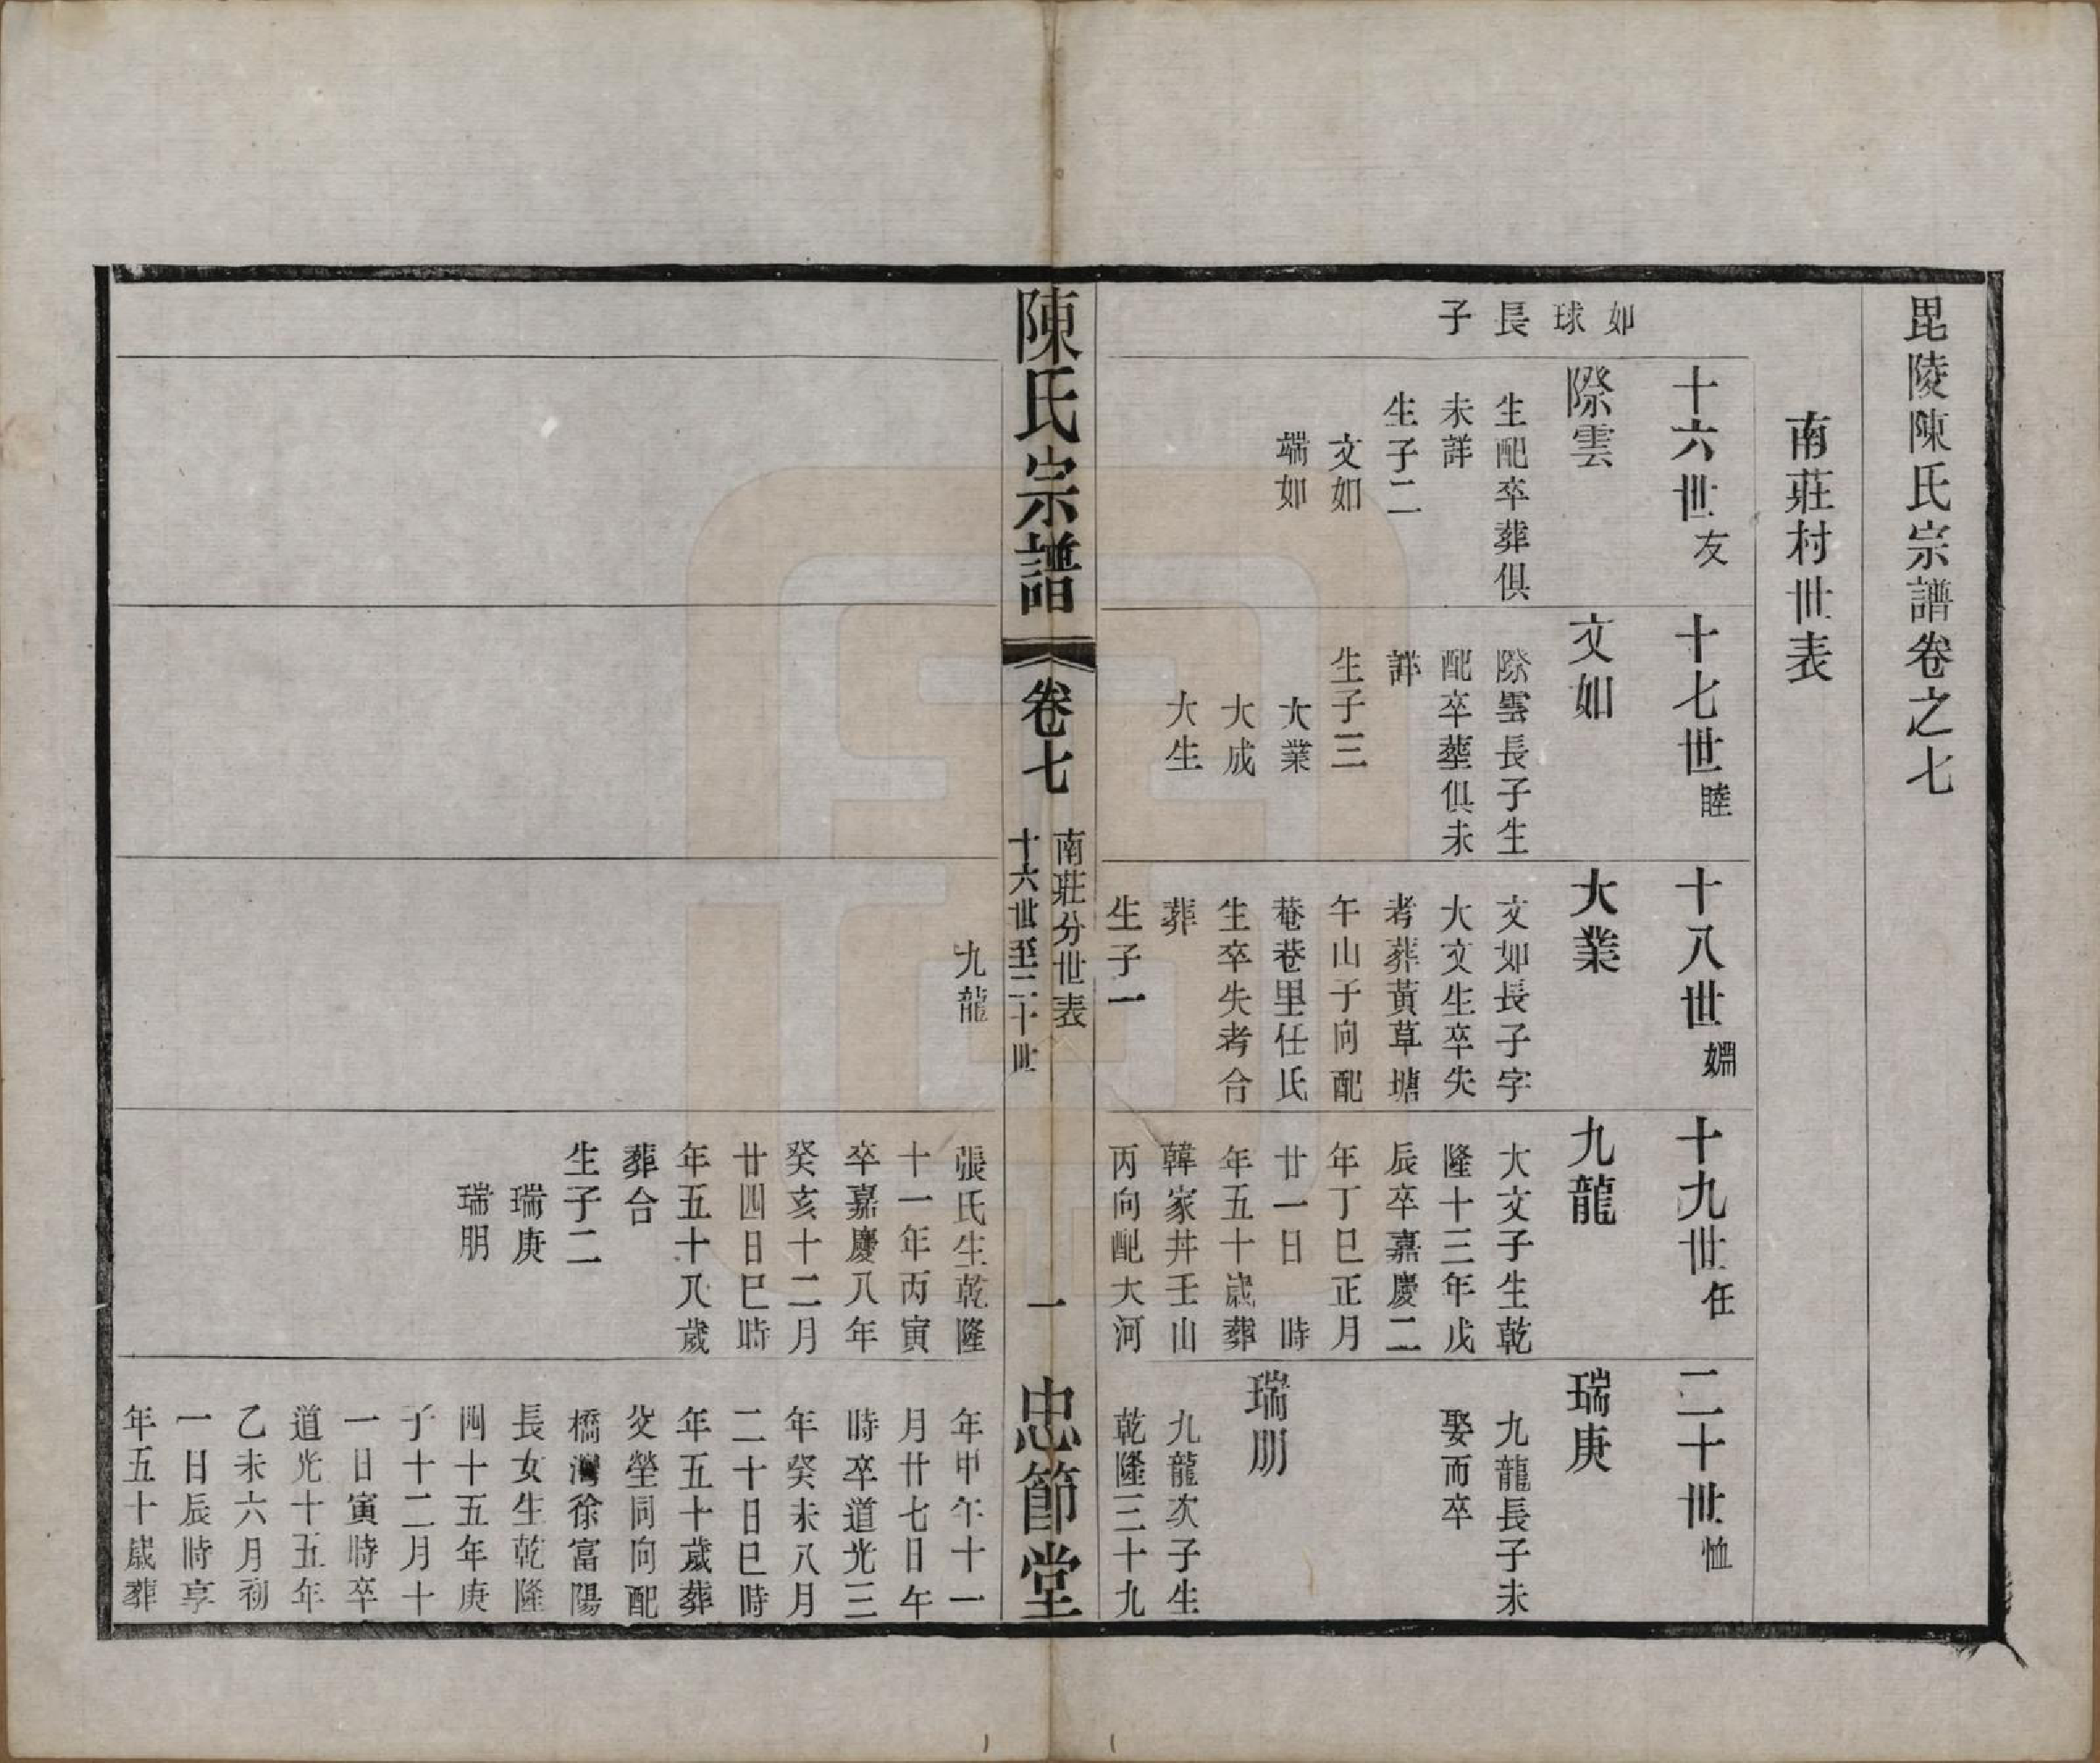 毘陵陳氏宗譜卷之七
南莊村世表
十六世友
十七世睦
十八世婣
十九世任
二十世恤
如
球
長
子
際雲
生配卒葬俱
未詳
生子二
文如
端如
文如
際雲長子生
配卒葬俱未
詳
生子三
大業
大成
大生
大業
文如長子字
大文生卒失
考葬黃草塘
午山子向配
菴巷里任氏
生卒失考合
葬
生子一
九龍
九龍
大文子生乾
隆十三年戊
辰卒嘉慶二
年丁巳正月
廿一日　時
年五十歲葬
韓家丼壬山
丙向配大河
張氏生乾隆
十一年丙寅
卒嘉慶八年
癸亥十二月
廿四日巳時
年五十八歲
葬合
生子二
瑞庚
瑞朋
瑞庚
九龍長子未
娶而卒
瑞朋
九龍次子生
乾隆三十九
年甲午十一
月廿七日午
時卒道光三
年癸未八月
二十日巳時
年五十歲葬
父塋同向配
橋灣徐富陽
長女生乾隆
四十五年庚
子十二月十
一日寅時卒
道光十五年
乙未六月初
一日辰時享
年五十歲葬
陳氏宗譜
卷七
南莊分世表
十六世至二十世
一
忠節堂